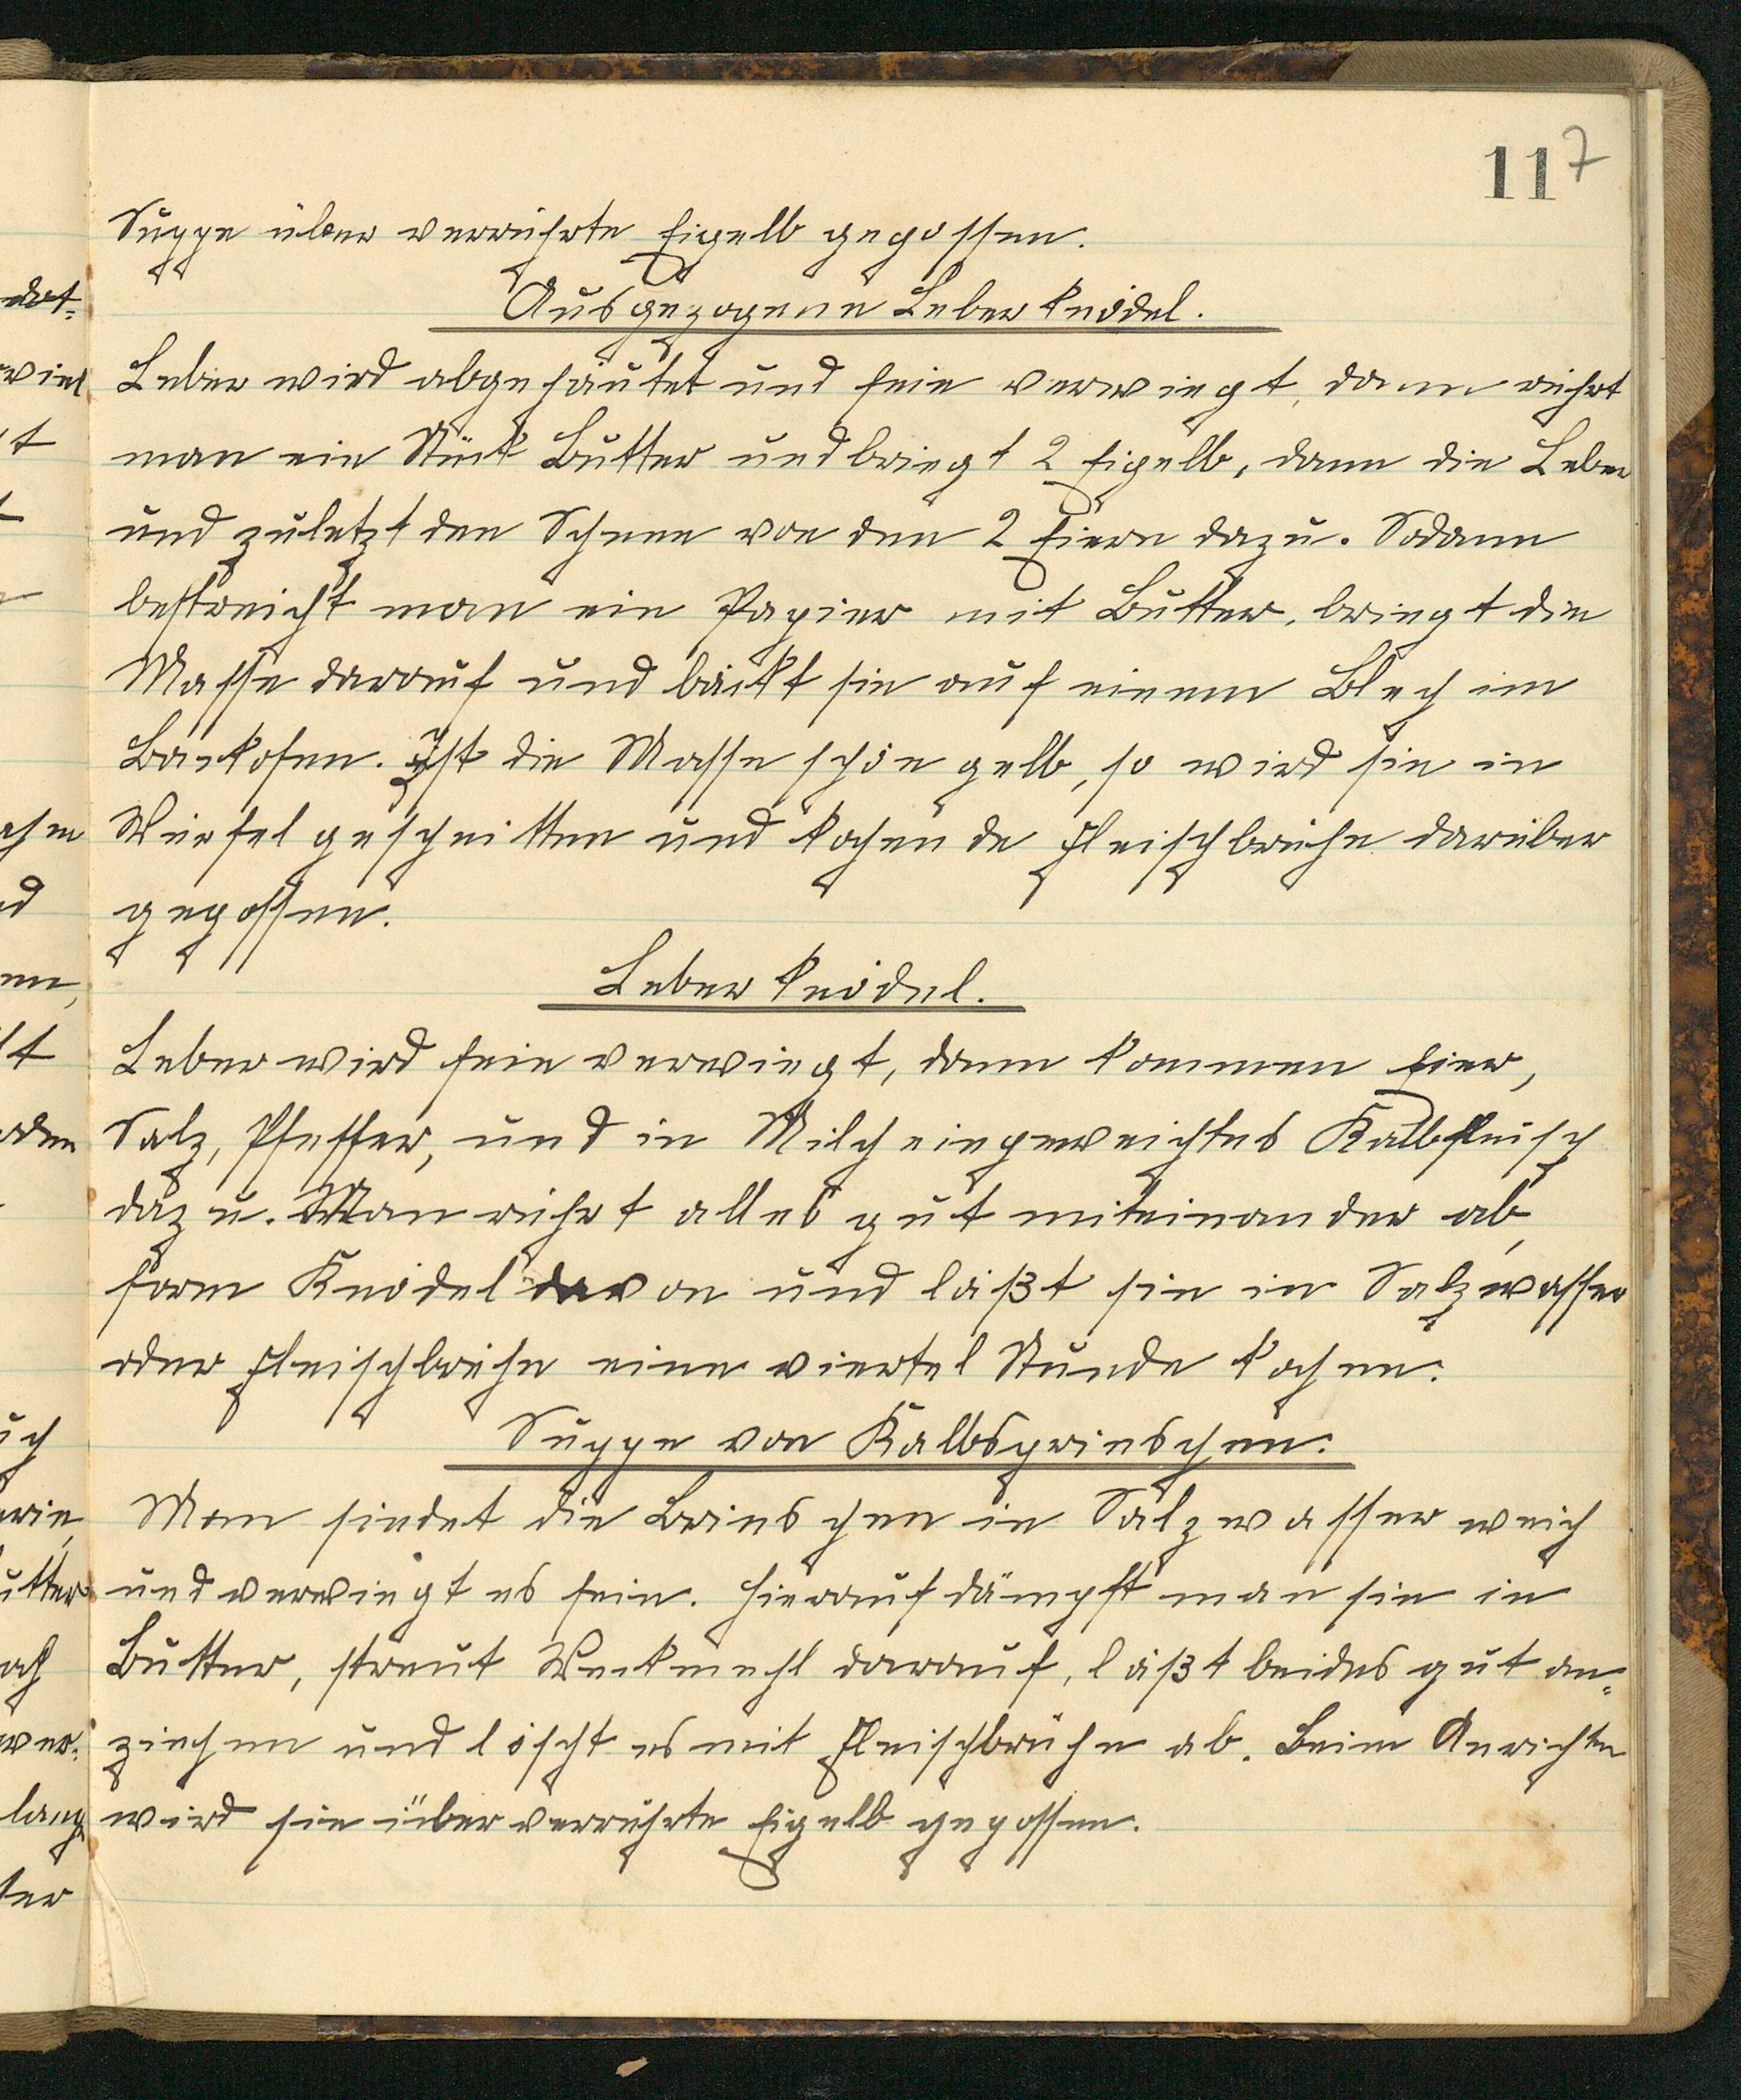 117
Suppe über verrührte Eigelb gegossen.
Ausgezogene Leberknödel.
Leber wird abgehäutet und fein verwiegt, dann rührt
man ein Stück Butter und bringt 2 Eigelb, dann die Leber
und zuletzt den Schnee von den 2 Eiern dazu. Sodann
bestreicht man ein Papier mit Butter, bringt die
Masse darauf und bäckt sie auf einem Blech im
Backofen. Ist die Masse schön gelb, so wird sie in
Würfel geschnitten und kochende Fleischbrühe darüber
gegossen.
Leberknödel.
Leber wird fein verwiegt, dann kommen Eier,
Salz, Pfeffer, und in Milch eingeweichtes Kalbfleisch
dazu. Man rührt alles gut miteinander ab,
form Knödel davon und läßt sie in Salzwasser
oder Fleischbrühe eine viertel Stunde kochen.
Suppe von Kalbsprieschen.
Man siedet die Brieschen in Salzwasser weich
und verwiegt es fein. Hierauf dämpft man sie in
Butter, streut Weckmehl darauf, läßt beides gut an-
ziehen und löscht es mit Fleischbrühe ab. Beim Anrichten
wird sie über verrührte Eigelb gegossen.